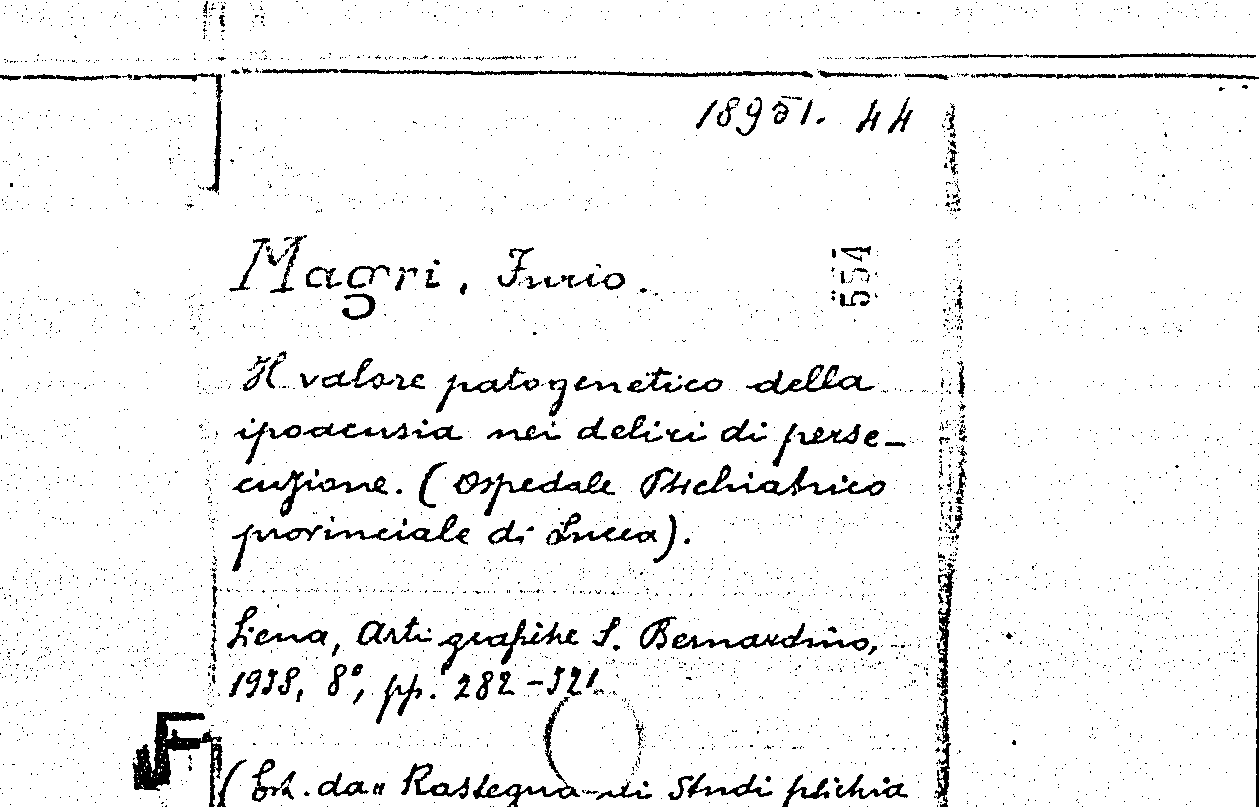 18951. 44
Magri, Furio.
554
Il valore patogenetico della
ipoacusia nei deliri di perse-
cuzione. (Ospedale Psichiatrico
provinciale di Lucca).
Siena, Arti grafiche S. Bernardino,
1938, 8°, pp. 282-321
(Estr. da "Rassegna di Studi psichia